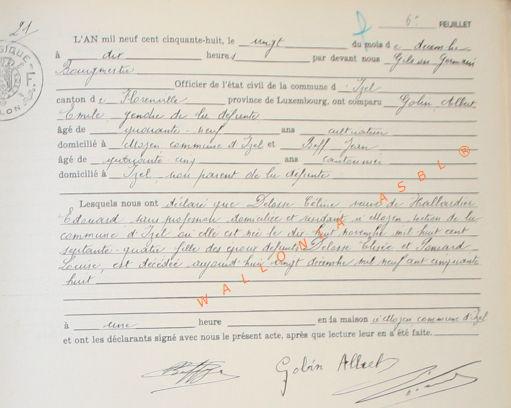 21
6e FEUILLET
L'AN mil neuf cent cinquante-huit, le vingt du mois de décembre
à dix heures par devant nous Gilson Germain
Bourgmestre
Officier de l'état civil de la commune d' Izel
canton de Florenville province de Luxembourg, ont comparu Gobin, Albert
Emile gendre de la défunte
âgé de quarante-neuf ans cultivateur
domicilié à Moyen commune d'Izel et Jean
âgé de cinq ans cantonnier
domicilié à Izel, non parent de la défunte
Lesquels nous ont déclaré que veuve de
Edouard sans profession domiciliée et résidant à Moyen section de la
commune d'Izel où elle est née le dix huit novembre mil huit cent
septante-quatre fille des époux défunts Elisée et
Louise, est décédée aujourd'hui vingt décembre mil neuf cent cinquante
huit
à une heure en la maison à Moyen commune d'Izel
et ont les déclarants signé avec nous le présent acte, après que lecture leur en a été faite.
Gobin Albert
WALLONIA ASBL ®